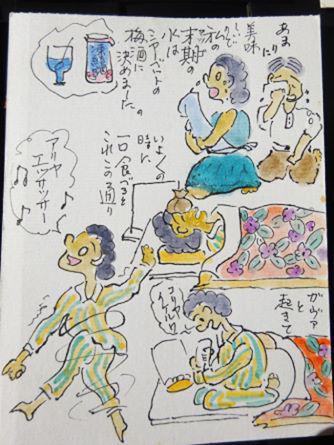 あま
りに
美味
しいので
私の
末期の
水は
シャーベットの
梅酒に
決めました。
いよくの
時に
一口食べると
これこの通り
ガヴァ
と
起きて
アリヤ
エッサッサー